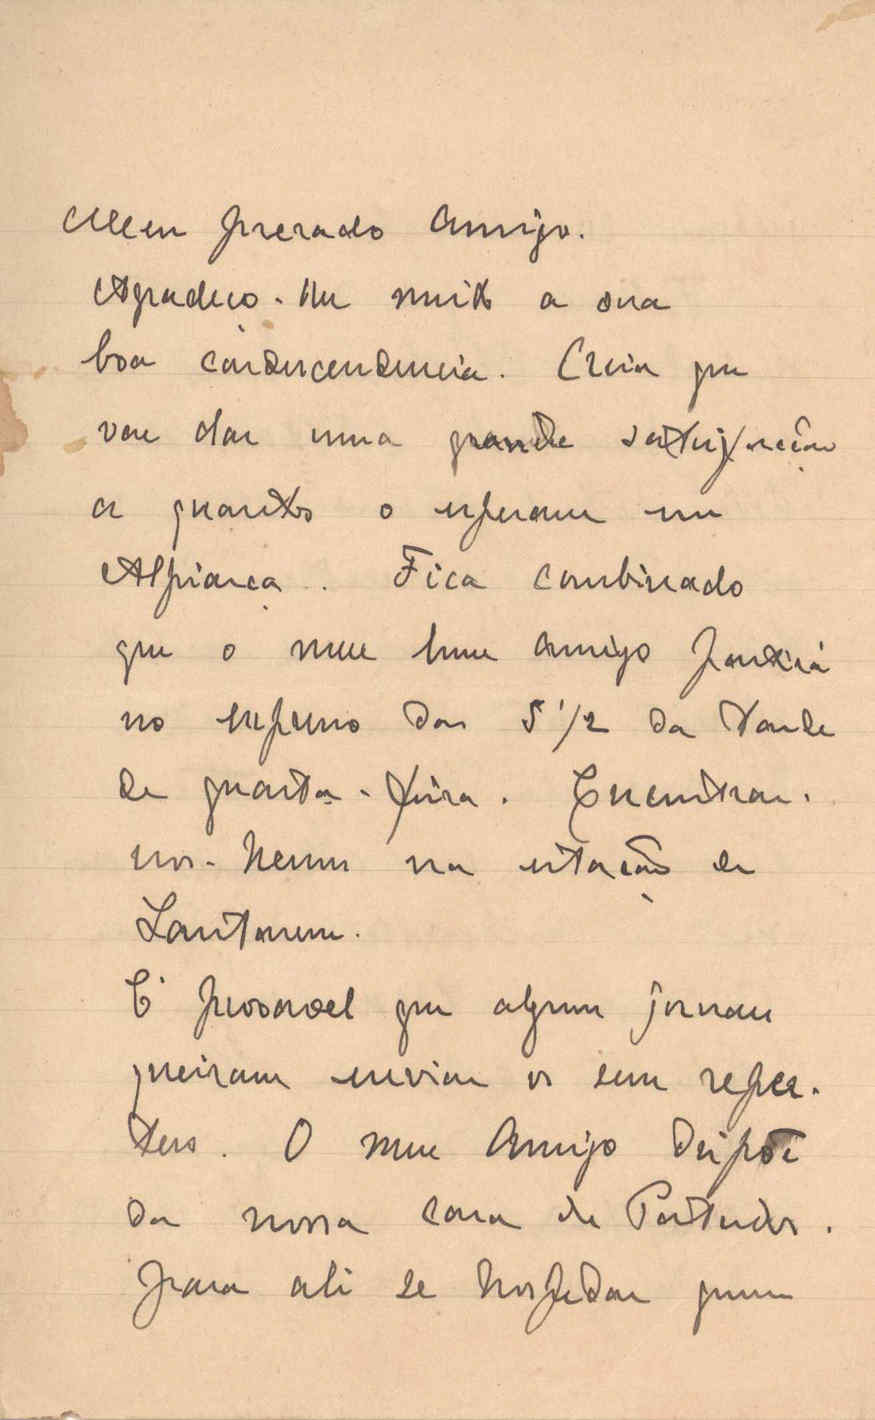 Meu prezado Amigo.
Agradeço-lhe muito a sua
boa condescendencia. Creia que
vae dar uma grande satisfação
a quantos o esperam em
Alpiarça. Fica combinado
que o meu bom amigo partirá
no expresso das 5 1/2 da tarde
de quarta-feira. Encontrar-
nos-hemos na estação de
Santarem.
É provavel que alguns jornaes
queiram enviar os seus repor-
ters. O meu Amigo dispõe
da nossa casa de
para ali se hospedar quem